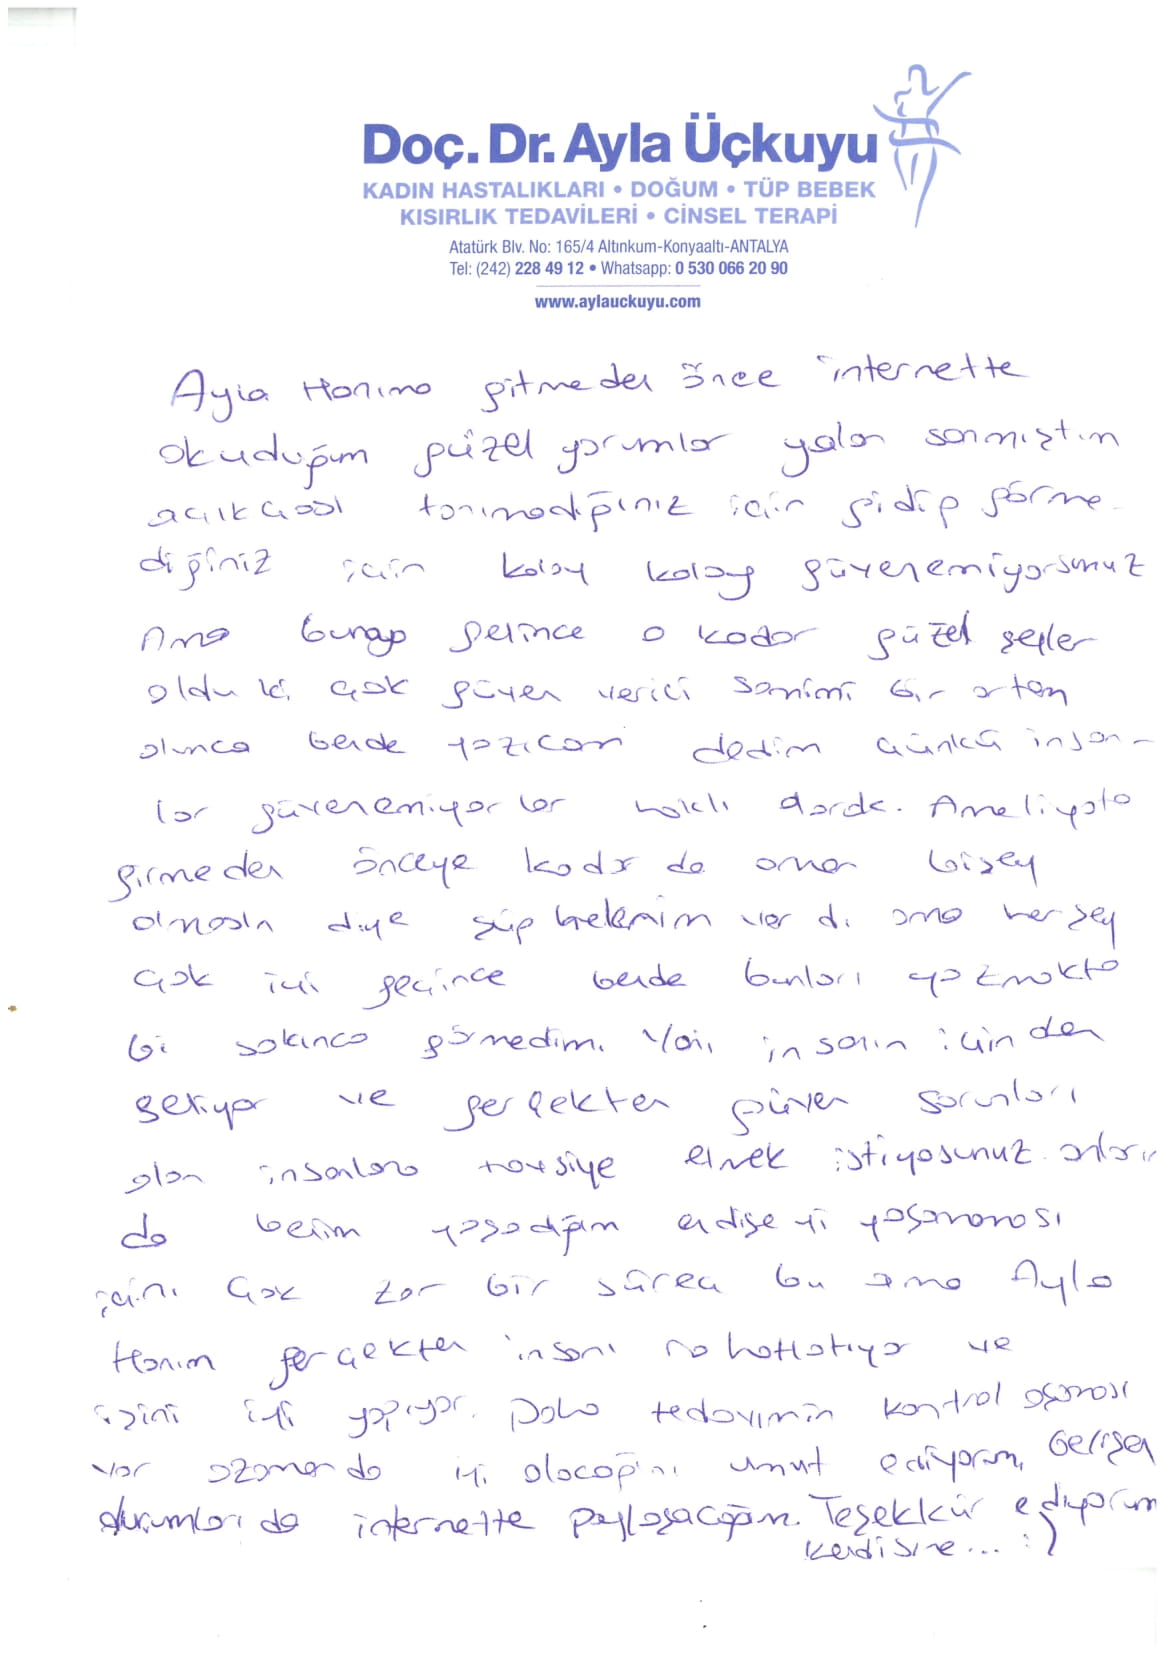 Doç. Dr. Ayla Üçkuyu
KADIN HASTALIKLARI • DOĞUM • TÜP BEBEK
KISIRLIK TEDAVİLERİ • CİNSEL TERAPİ
Atatürk Blv. No: 165/4 Altınkum-Konyaaltı-ANTALYA
Tel: (242) 228 49 12 • Whatsapp: 0 530 066 20 90
www.aylauckuyu.com
Ayla Hanıma gitmeden önce internette
okuduğum güzel yorumlar yalan sanmıştım
açıkçası tanımadığınız için gidip görme
diğiniz için kolay kolay güvenemiyorsunuz
Ama buraya gelince o kadar güzel şeyler
oldu ki çok güven verici samimi bir ortam
olunca bende yazıcam dedim çünkü insan-
lar güvenemiyorlar haklı olarak. Ameliyata
girmeden önceye kadar da aman bişey
olmasın diye şüphelerim var dı ama herşey
çok iyi geçince bende bunları yazmakta
bi sakınca görmedim. Yani insanın içinden
geliyor ve gerçekten güven sorunları
olan insanlara tavsiye etmek istiyosunuz onların
da benim yaşadığım endişeyi yaşamaması
için. Çok zor bir süreç bu ama Ayla
Hanım gerçekten insanı rahatlatıyor ve
işini iyi yapıyor. Daha tedavimin kontrol aşaması
var ozamanda iyi olacağını umut ediyorum. Gelişen
durumları da internette paylaşacağım. Teşekkür ediyorum
kendisine... :)